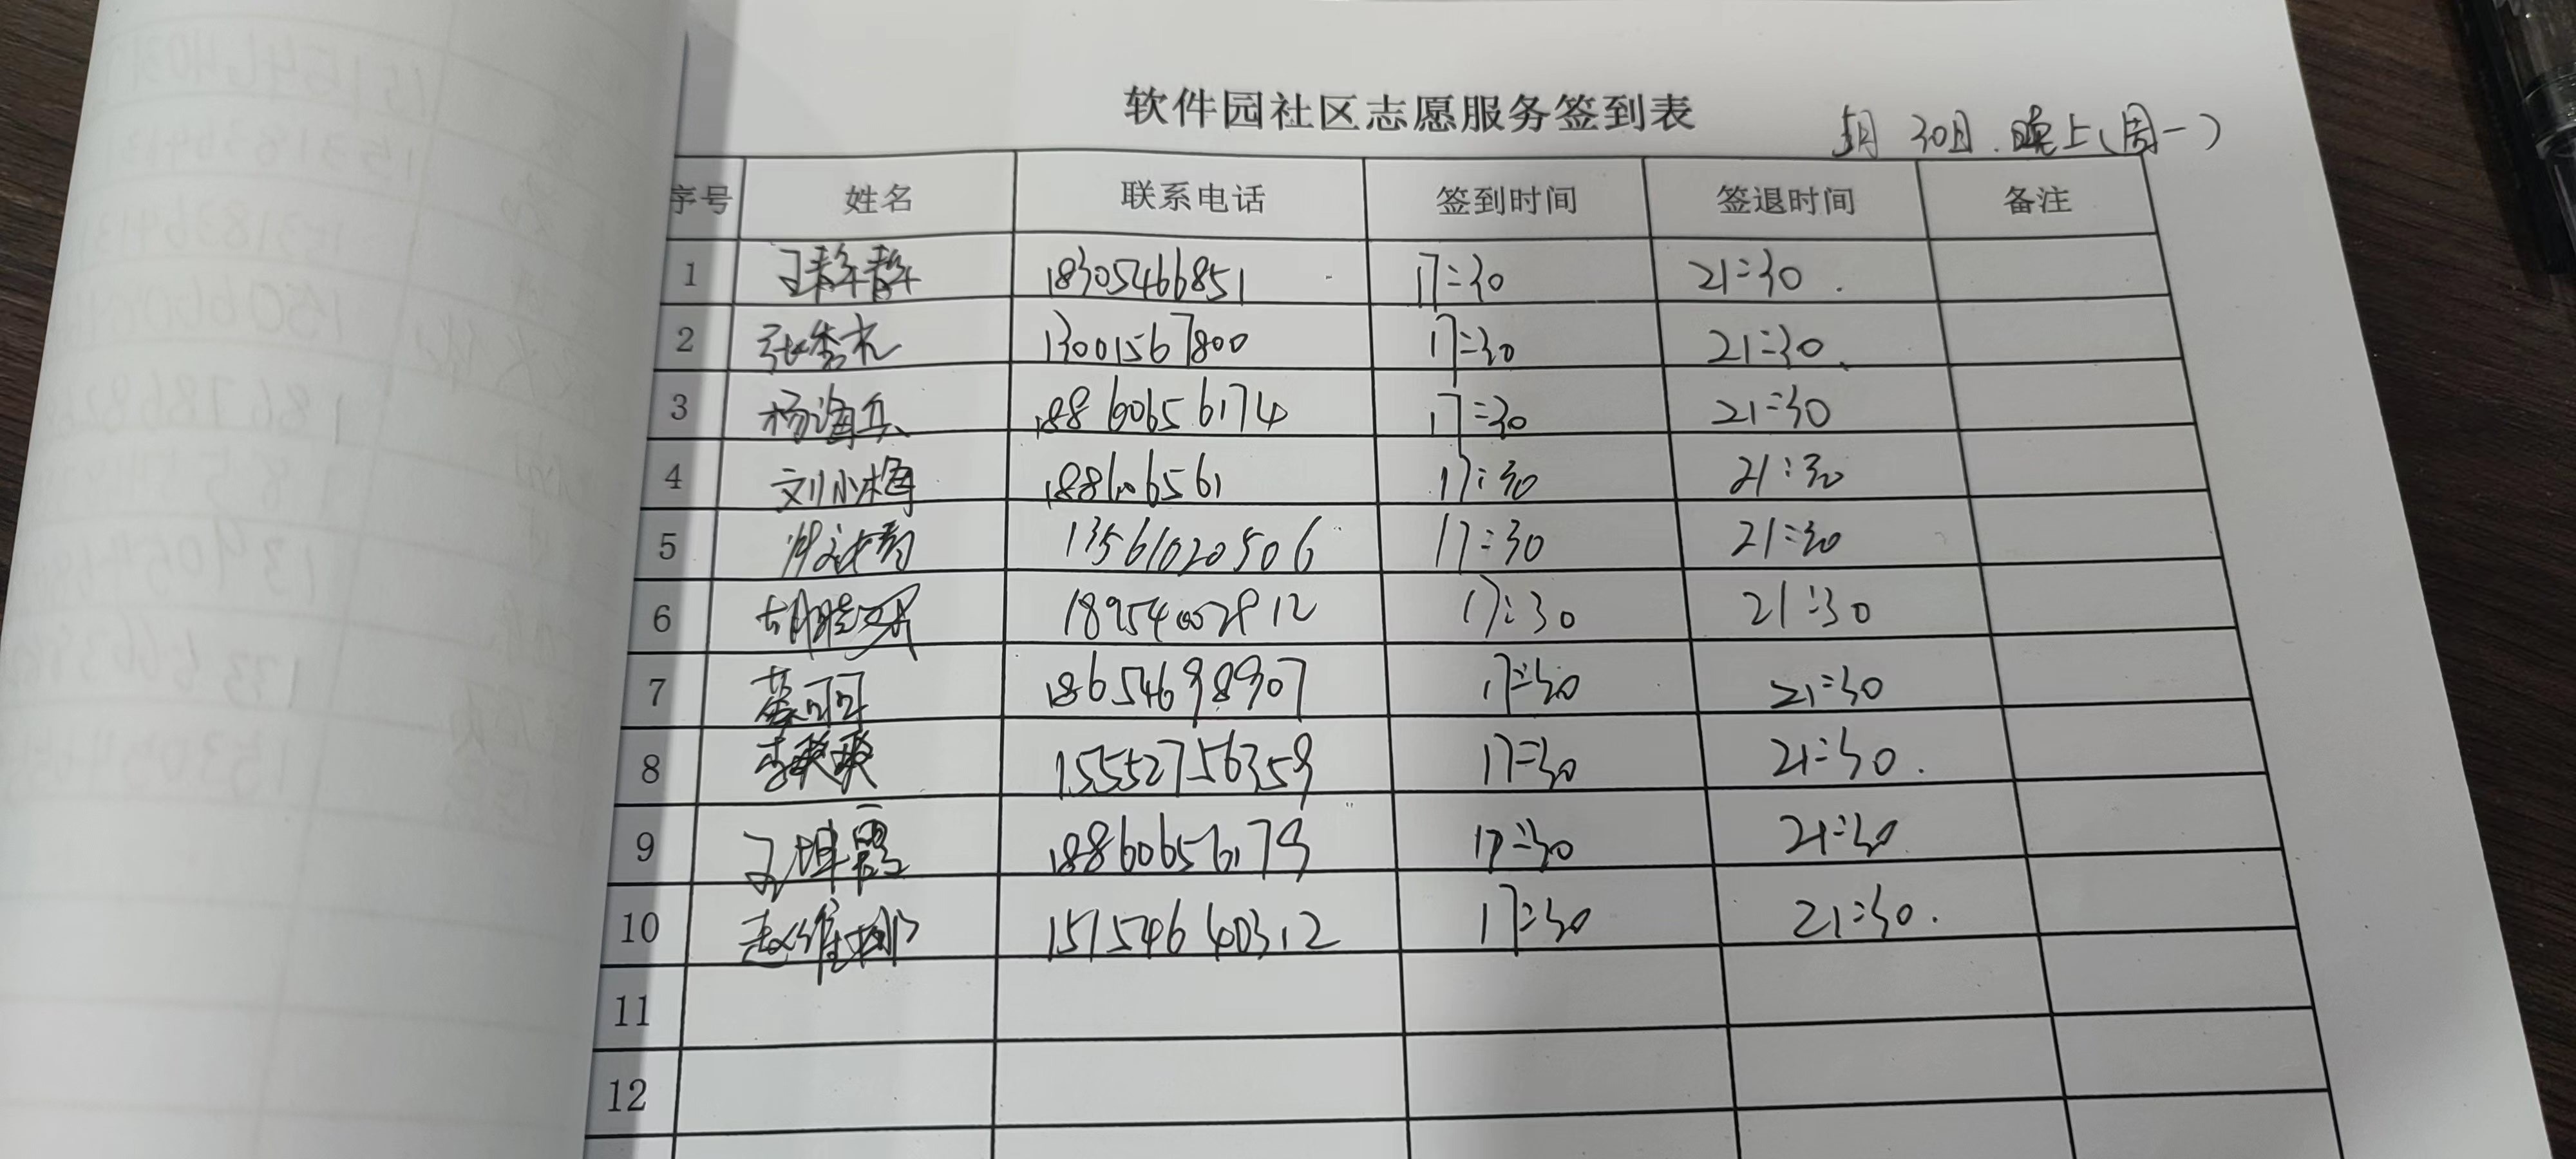 软件园社区志愿服务签到表
5月30日.晚上(周一)
序号 姓名 联系电话 签到时间 签退时间 备注
1 王静静 18305466851 17:30 21:30.
2 张秀花 13001567800 17:30 21:30.
3 杨海兵 18860656174 17:30 21:30
4 刘小梅 188606561 17:30 21:30
5 13561020506 17:30 21:30
6 胡晓翠 18954002812 17:30 21:30
7 可可 18654698907 17:30 21:30
8 李联联 15552756359 17:30 21:30.
9 王 霞 18860656179 17:30 21:30
10 赵维娜 15154640312 17:30 21:30.
11
12